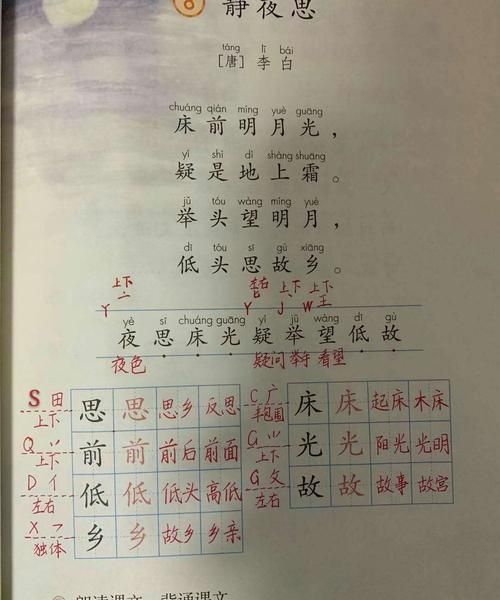 8 静夜思
táng lǐ bái
[唐] 李白
chuáng qián míng yuè guāng
床前明月光，
yí shì dì shàng shuāng
疑是地上霜。
jǔ tóu wàng míng yuè
举头望明月，
dī tóu sī gù xiāng
低头思故乡。
上下 左右 上下 上下
Y 亠 Y J W 王
yè sī chuáng guāng yí jǔ wàng dī gù
夜思床光疑举望低故
夜色 疑问 举手 看望
S 田 上下 思 思 思乡 反思 C 广 半包围 床 床 起床 木床
Q 丷 上下 前 前 前后 前面 G ⺌ 上下 光 光 阳光 光明
D 亻 左右 低 低 低头 高低 G 攵 左右 故 故 故事 故宫
X 独体 乡 乡 故乡 乡亲
朗读课文。背诵课文